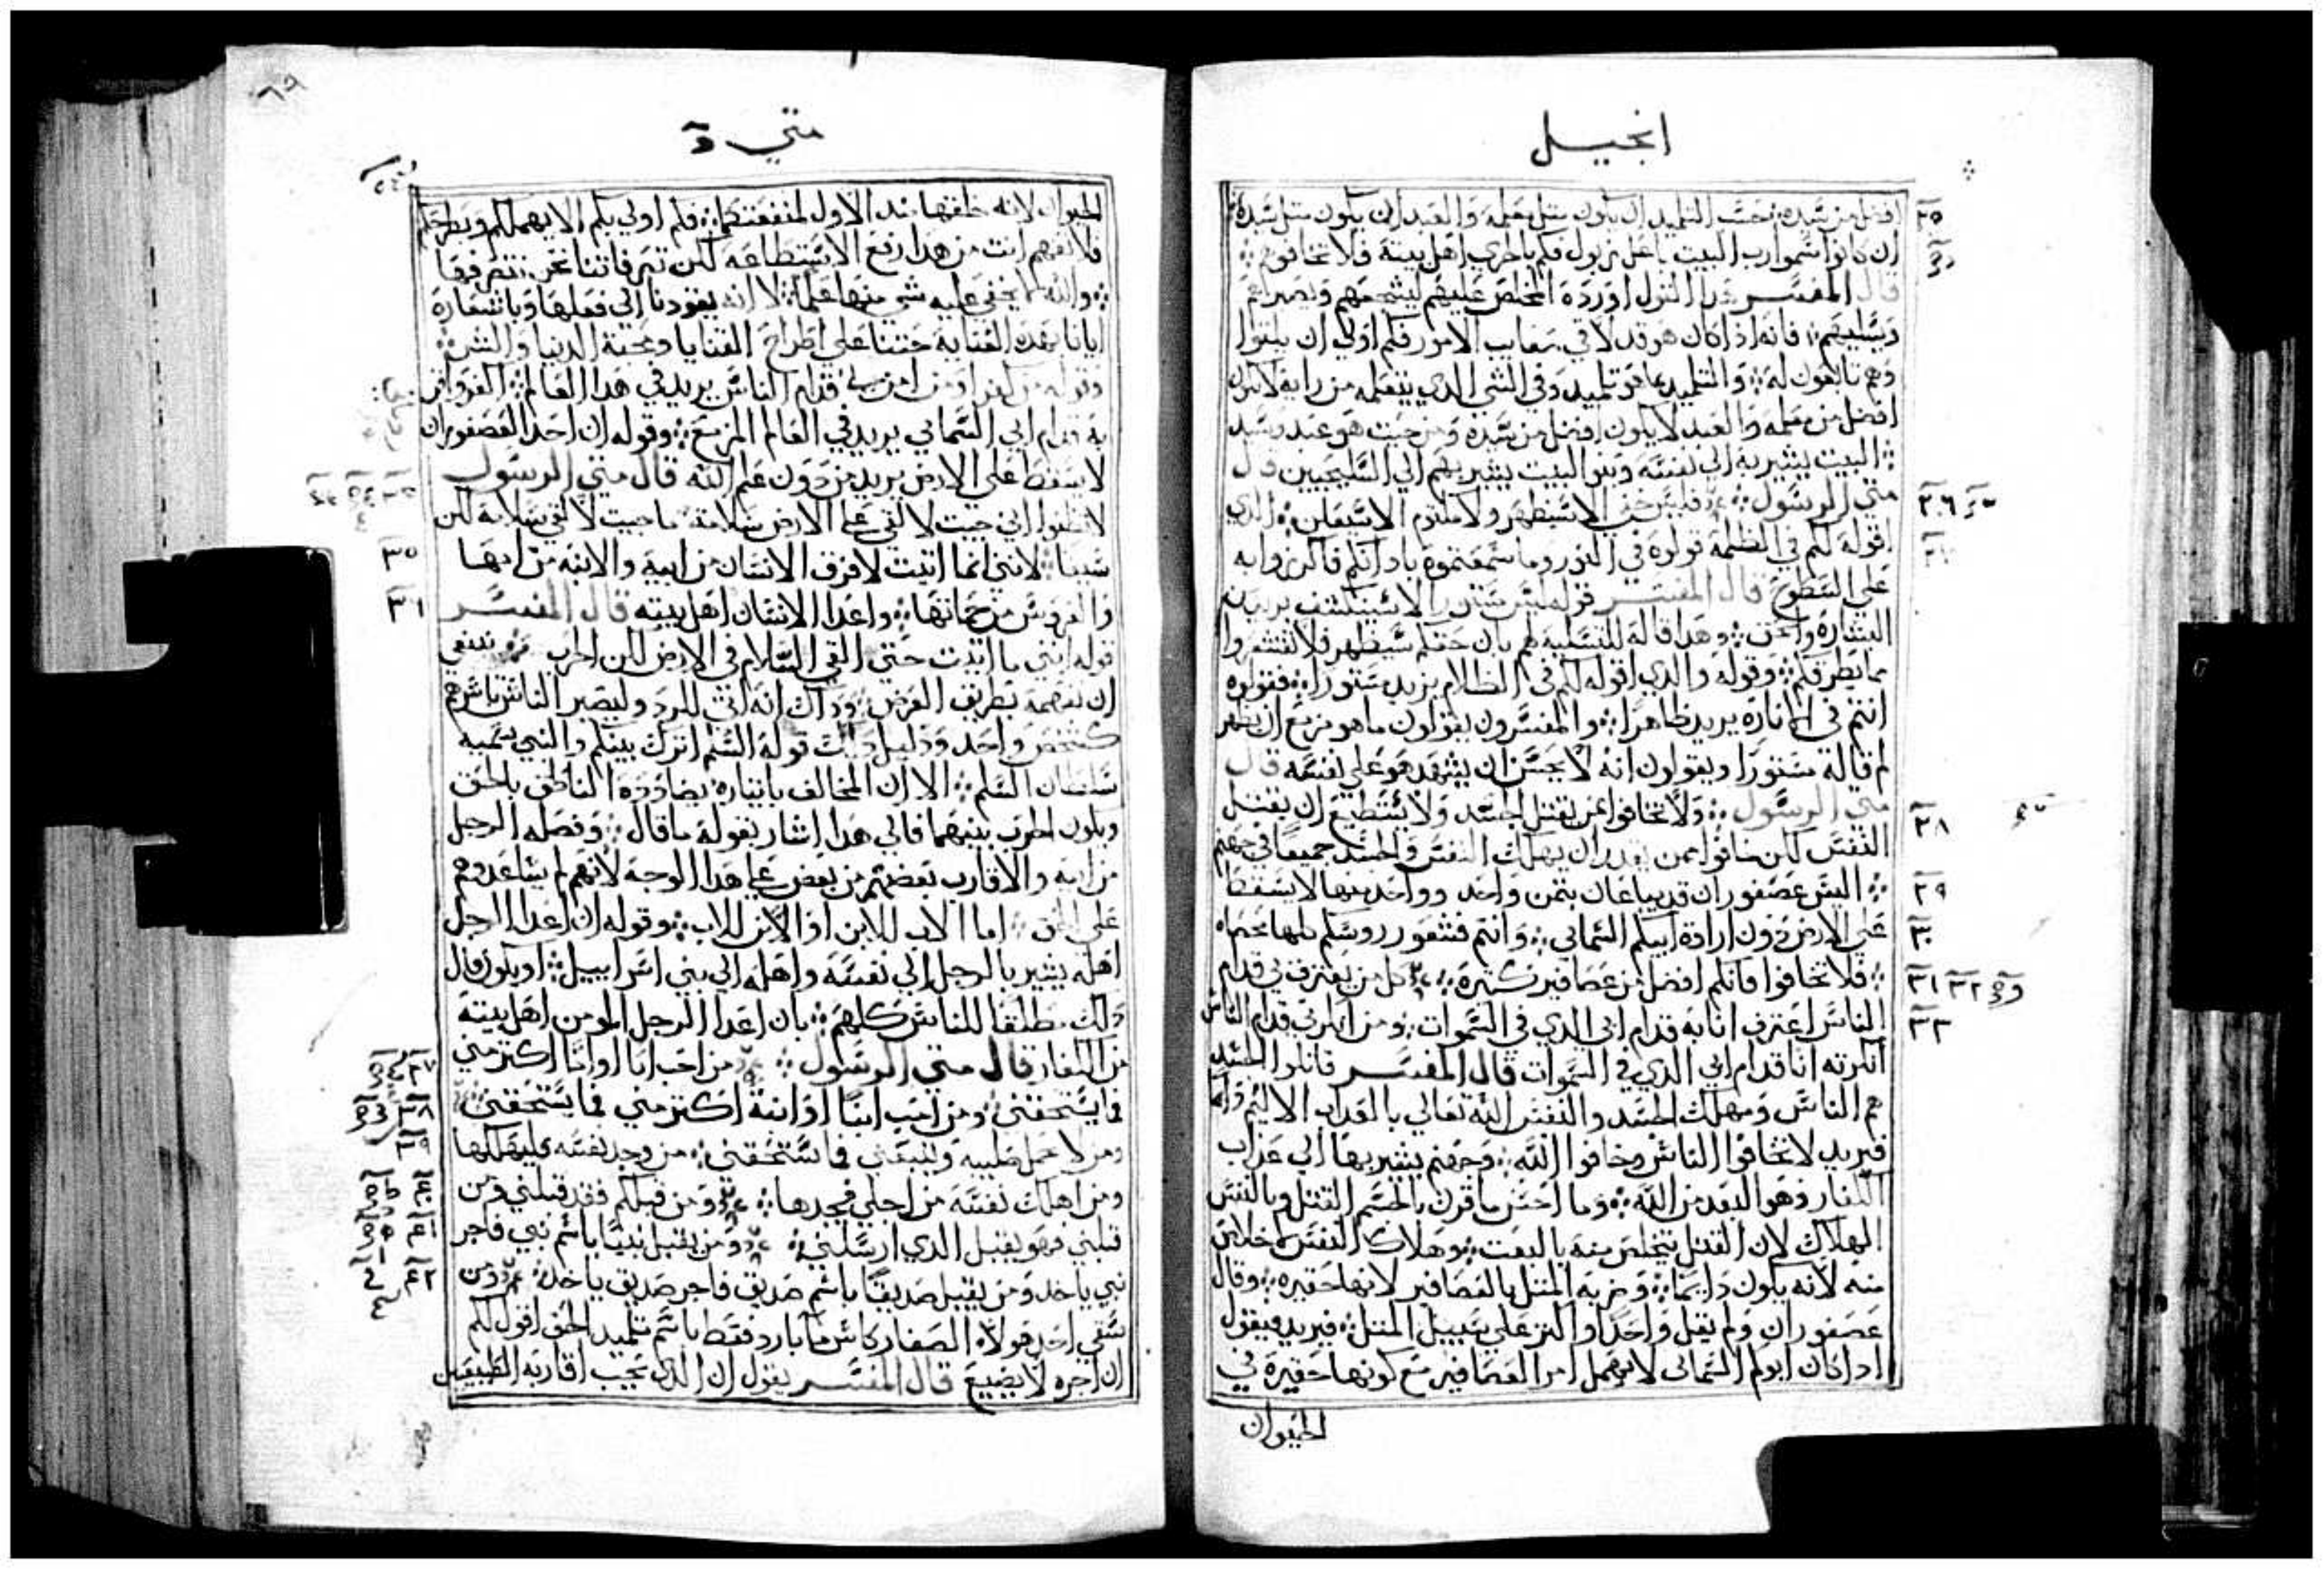 انجيل
افضل من سيده؛ حسب التلميد ان يكون متل معلمه والعبد ان يكون متل سيده
٢٥
ان كانوا سموا رب البيت باعل زبول فكم بالحري اهل بيته فلا تخافوهم
قال المفسر هدا القول اورده المخلص عليهم ليشجعهم ويصبرهم
ويسليهم فانه اذا كان هو قد لاقي صعايب الامور فكم اولي ان يلقوا
وهم تابعون له والتلميد بما هو تلميد وفي الشي الدي يتعلمه من رايه لا يكون
افضل من معلمه والعبد لا يكون افضل من سيده ومن حيت هو عبد وسيد
البيت يشير به الي نفسه وبنوا البيت يشير بهم الي السليحيين قال
متي الرسول فليس خفي الا سيظهر ولا مكتوم الا سيعلن الدي
٢٦
اقوله لكم في الظلمة قولوه في النور وما سمعتموه باذانكم فاكرزوا به
٢٧
علي السطوح قال المفسر قوله ليس مستورا الا سينكشف يريد من
البشارة والحق وهدا قاله للتسلية لهم بان حقكم سيظهر فلا تقشعروا
مما يطرقكم وقوله والدي اقوله لكم في الظلام يريد مستورا فقولوه
انتم في النهار يريد ظاهرا والمفسرون يقولون ما هو مزمع ان يظهر
لم قاله مستورا ويقولون انه لا يحسن ان يشهد هو علي نفسه قال
متي الرسول ولا تخافوا ممن يقتل الجسد ولا يستطيع ان يقتل
٢٨
النفس لكن خافوا ممن يقدر ان يهلك النفس والجسد جميعا في جهنم
اليس عصفوران قد يباعان بتمن واحد وواحد منها لا يسقط
٢٩
علي الارض دون ارادة ابيكم السماني وانتم فشعور روسكم كلها محصاه
٣٠
فلا تخافوا فانكم افضل من عصافير كتيرة كل من يعترف بي قدام
٣١ ٣٢
الناس اعترف انا به قدام ابي الدي في السموات ومن انكرني قدام الناس
٣٣
انكرته انا قدام ابي الدي في السموات قال المفسر قاتلوا الجسد
هم الناس ومهلك الجسد والنفس الله تعالي بالعداب الاليم
فيريد لا تخافوا الناس وخافوا الله وجهنم يشير بها الي عداب
الكفار وهو البعد من الله وما احسن ما قرن بالجسم القتل وبالنفس
الهلاك لان القتل يتخلص منه بالبعت وهلاك النفس لا خلاص
منه لانه يكون دايما وضربه المتل بالعصافير لانها حقيره وقال
عصفوران ولم يقل واحدا او اكتر علي سبيل المتل فيريد فيقول
ادا كان ابوكم السماني لا يهمل امر العصافير مع كونها حقيرة في
الحيوان
متي
الحيوان لانه خلقها مند الاول لمنفعتكم فكم اولي بكم الا يهملكم ويطرحكم
فلا تفهم انت من هدا رفع الاستطاعه لكن تصرفاتنا نحن نتصرف فيها
والله لا يخفي عليه شي منها علما لا انه يقودنا الي فعلها وباشعاره
ايانا بهده العناية حتنا علي اطراح القنايا ومحبة الدنيا
قدام الناس يريد في هدا العالم
به قدام ابي السماني يريد في العالم المزمع وقوله ان احد العصفوران
لا يسقط علي الارض يريد من دون علم الله قال متي الرسول
لا تظنوا اني جيت لالقي علي الارض سلامة ما جيت لالقي سلامة لكن
سيفا لانني انما اتيت لافرق الانسان من ابيه والابنة من امها
٣٥
والعروس من حماتها واعدا الانسان اهل بيته قال المفسر
٣٦
قوله انني ما اتيت حتي القي السلام في الارض لكن الحرب ينبغي
ان نفهمه بطريق العرض وداك انه اتي للرد وليصير الناس باسرهم
كشخص واحد ودليل دلك قوله السلم اترك بينكم والنبي يسميه
سلطان السلم الا ان المخالف باتياره يضادده الناطق بالحق
ويكون الحرب بينهما فالي هدا اشار بقوله ما قال وفصله الرجل
من ابيه والاقارب بعضهم من بعض علي هدا الوجه لانهم لم يساعدوهم
علي الحق اما الاب للابن او الابن للاب وقوله ان اعدا الرجل
اهله يشير بالرجل الي نفسه واهله الي بني اسراييل او يكون قال
دلك مطلقا للناس كلهم بان اعدا الرجل المومن اهل بيته
من الكفار قال متي الرسول من احب ابا او اما اكتر مني
٣٧
فما يستحقني ومن احب ابنا او ابنة اكتر مني فما يستحقني
٣٨
ومن لا يحمل صليبه ويتبعني فما يستحقني من وجد نفسه فليهلكها
٣٩
ومن اهلك نفسه من اجلي فيجدها ومن قبلكم فقد قبلني ومن
٤٠
قبلني فهو يقبل الدي ارسلني ومن يقبل نبيا باسم نبي فاجر
٤١
نبي ياخد ومن يقبل صديقا باسم صديق فاجر صديق ياخد ومن
٤٢
سقي احد هولاء الصغار كاس ما بارد فقط باسم تلميد الحق اقول لكم
ان اجره لا يضيع قال المفسر يقول ان الدي يحب اقاربه الطبيعيين